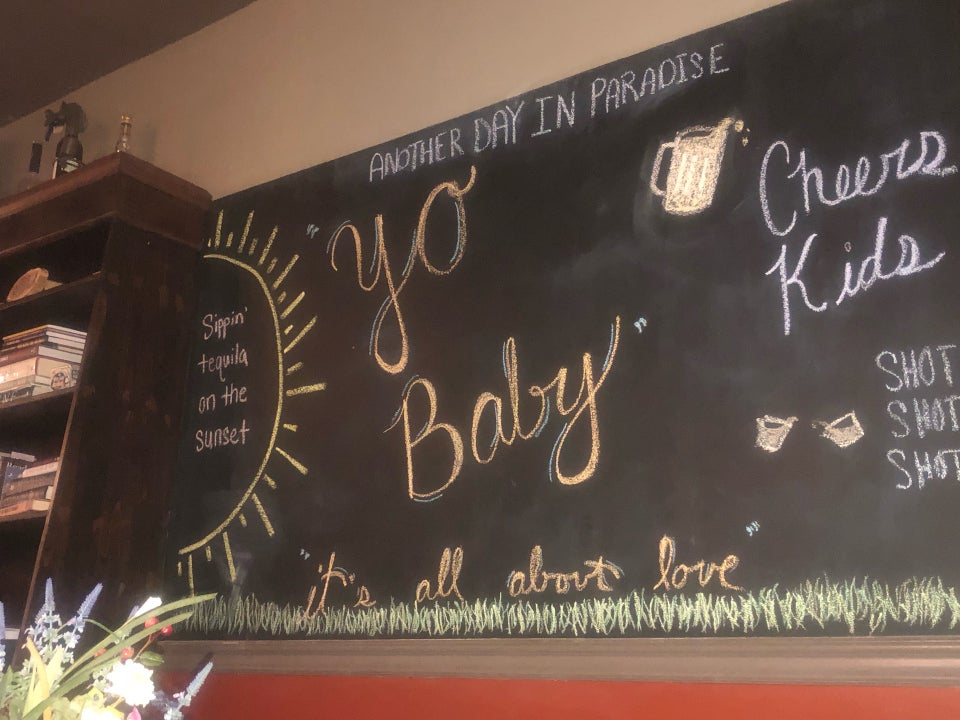 ANOTHER DAY IN PARADISE
"Yo
Baby"
Cheers
Kids
Sippin'
tequila
on the
sunset
SHOT
SHOT
SHOT
"it's all about love"